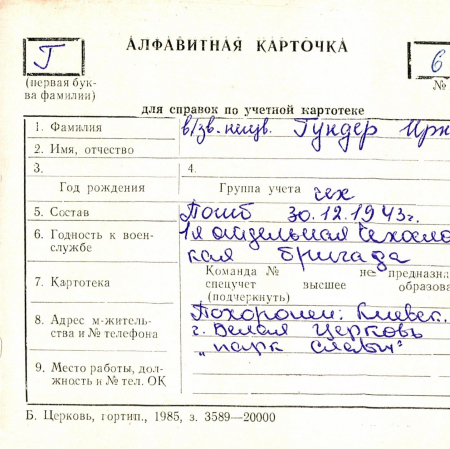 Г
АЛФАВИТНАЯ КАРТОЧКА
6
(первая бук-
ва фамилии)
№
для справок по учетной картотеке
1. Фамилия
в/зв. неизв. Гундер Ирж
2. Имя, отчество
3.
4.
Год рождения
Группа учета чех
5. Состав
Погиб 30.12.1943г.
6. Годность к воен-
службе
1я отдельная Чехосло
кая бригада
7. Картотека
Команда № не предназна
спецучет высшее образова
(подчеркнуть)
8. Адрес м-житель-
ства и № телефона
Похоронен: Киевск.
г. Белая Церковь
„парк Славы"
9. Место работы, дол-
жность и № тел. ОК
Б. Церковь, гортип., 1985, з. 3589—20000